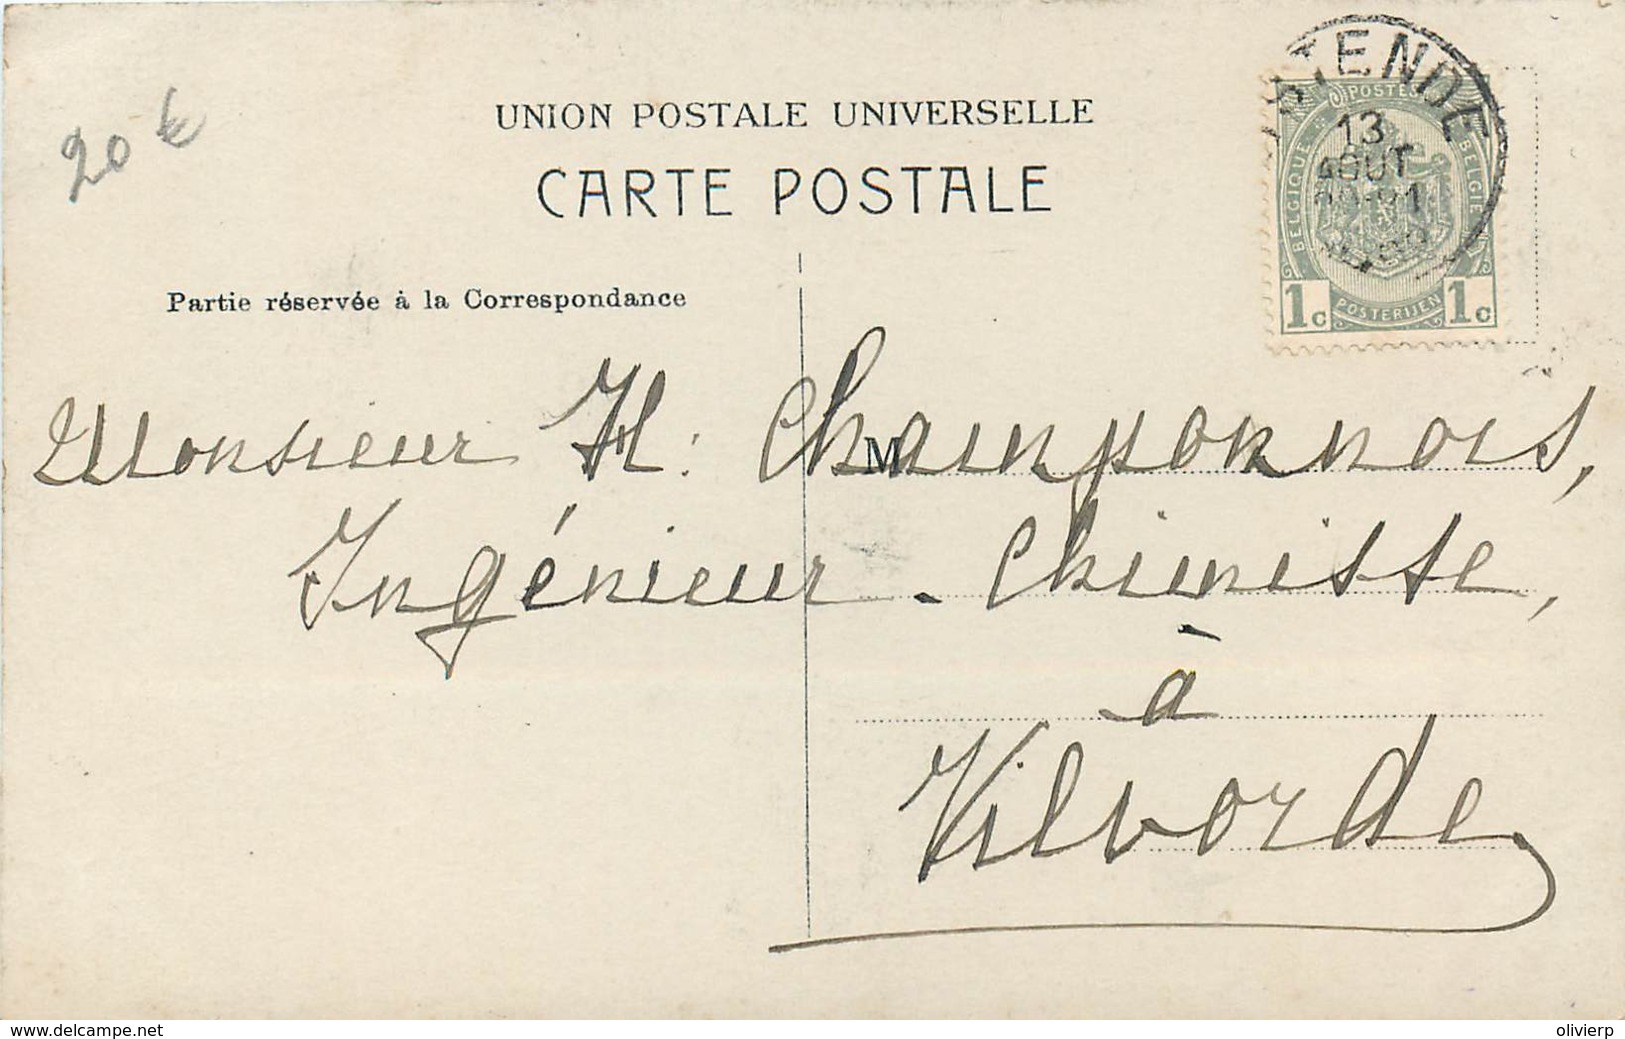 20 €
UNION POSTALE UNIVERSELLE
CARTE POSTALE
Partie réservée à la Correspondance
OSTENDE
13
AOUT
20-21
POSTES
BELGIQUE
BELGIË
1c POSTERIJEN 1c
M
Monsieur H. Champonnois,
Ingénieur - Chimiste,
à
Vilvorde
www.delcampe.net
olivierp